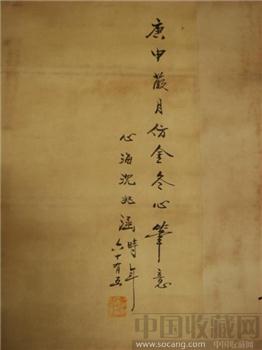 庚申葭月仿金冬心筆意
心海沈兆涵時年
六十有五
中国收藏网
www.socang.com